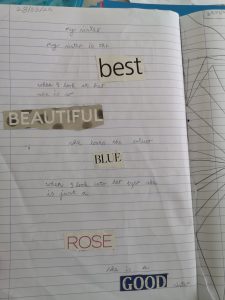 my sister
my sister is the
best
when I look at her
she is so
BEAUTIFUL
she loves the colour
BLUE
when I look into her eyes she
is just a
ROSE
she is a
GOOD sister